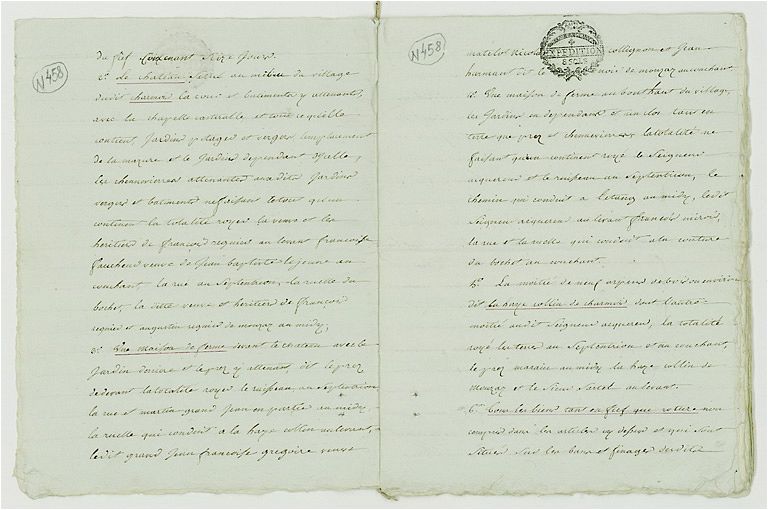 N 458
du fief Contenant Seize Jours.
2.° Le chateau situé au milieu du village
dudit charmois la cour et batimente y attenants,
avec la chapelle castralle et tout ce qu'elle
contient, Jardins potagers et vergers, l'emplacement
de la mazure et le Jardins dependant d'icelle,
les chenevierres attenantes auxdits Jardins
verger et batiments ne faisant le tout qu'un
continent la totalité royée la veuve et les
heritiers de francois regnier au levant francoise
faucheux veuve de Jean baptiste lejeune au
couchant, la rue au septentrion, la ruelle du
bochet, la ditte veuve et heritiers de francois
regnier et augustin regnier de mouzay au midy;
3.° Une maison de ferme devant le chateau avec le
Jardin derriere et le prez y attenant, dit le prez
dedevant la totalité royée le ruisseau au septentrion
la rue et martin grand Jean en partie au midy,
la ruelle qui conduit a la haye collin au levant,
ledit grand Jean francoise gregoire veuve
N 458
matelot collignon et Jean
harmant dit le de mouzay au couchant
EXPEDITION
4.° Une maison de ferme au bout haut du village,
les Jardins en dependans et un clos tant en
terre que prez et chennevierres, la totalité ne
faisant qu'un continent royé le Seigneur
acquereur et le ruisseau au Septentrion, le
chemin qui conduit a l'etang au midy, ledit
Seigneur acquereur au levant francois miroir,
la rue et la ruelle qui conduit a la couture
du bochet au couchant.
5.° La moitié de neuf arpens de bois ou environ
dit la haye collin de charmois dont l'autre
moitié audit Seigneur acquereur, la totalité
royé les terres au Septentrion et au couchant,
le prez marain au midy la haye collin de
mouzay et le Sieur Sartel au levant.
6.° Tous les biens tant en fief que roture non
compris dans les articles cy dessus et qui sont
Situés sur les bans et finages desdits